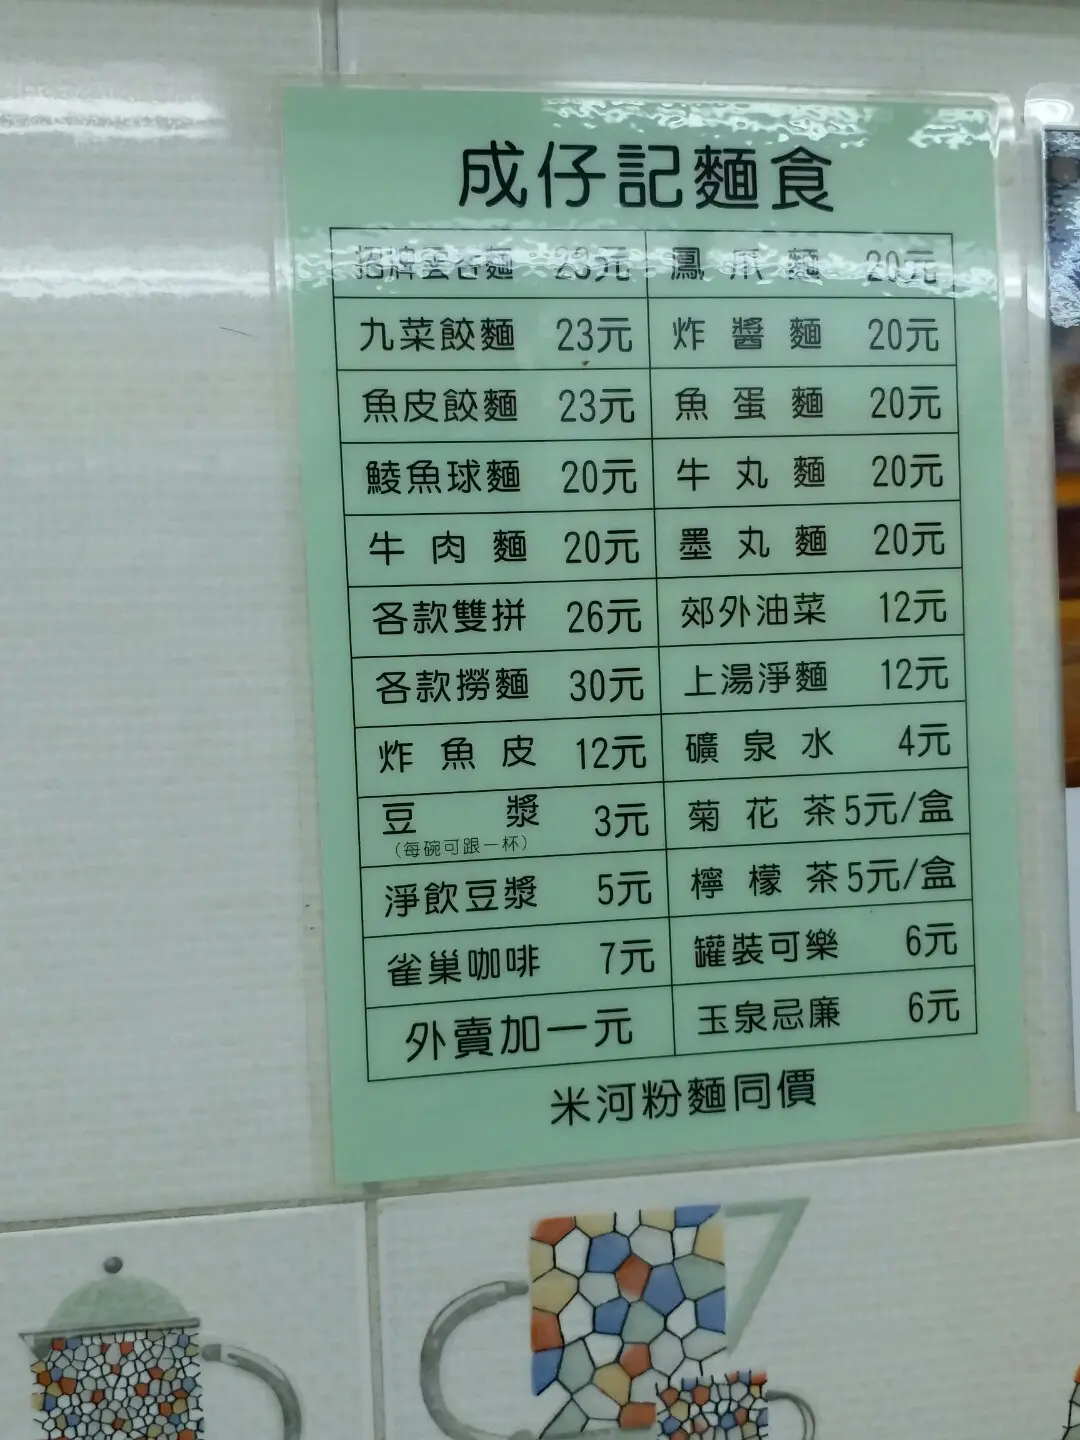 成仔記麵食
招牌雲吞麵 23元 鳳爪麵 20元
九菜餃麵 23元 炸醬麵 20元
魚皮餃麵 23元 魚蛋麵 20元
鯪魚球麵 20元 牛丸麵 20元
牛肉麵 20元 墨丸麵 20元
各款雙拼 26元 郊外油菜 12元
各款撈麵 30元 上湯淨麵 12元
炸魚皮 12元 礦泉水 4元
豆漿 3元 菊花茶 5元/盒
(每碗可跟一杯)
淨飲豆漿 5元 檸檬茶 5元/盒
雀巢咖啡 7元 罐裝可樂 6元
外賣加一元 玉泉忌廉 6元
米河粉麵同價